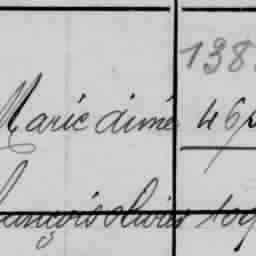 138
Marie aimé 46
François olivier 109